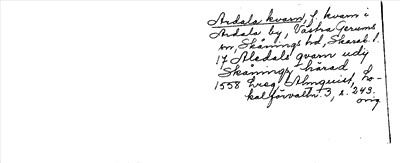 Ardala kvarn, f. kvarn i
Ardala by, Västra Gerums
sn, Skånings hd, Skarab. l.
17 Aledals qvarn udj
Skånings härad
1558 Lreg, Almquist, Lo-
kalförvaltn. 3, s. 243.
orig